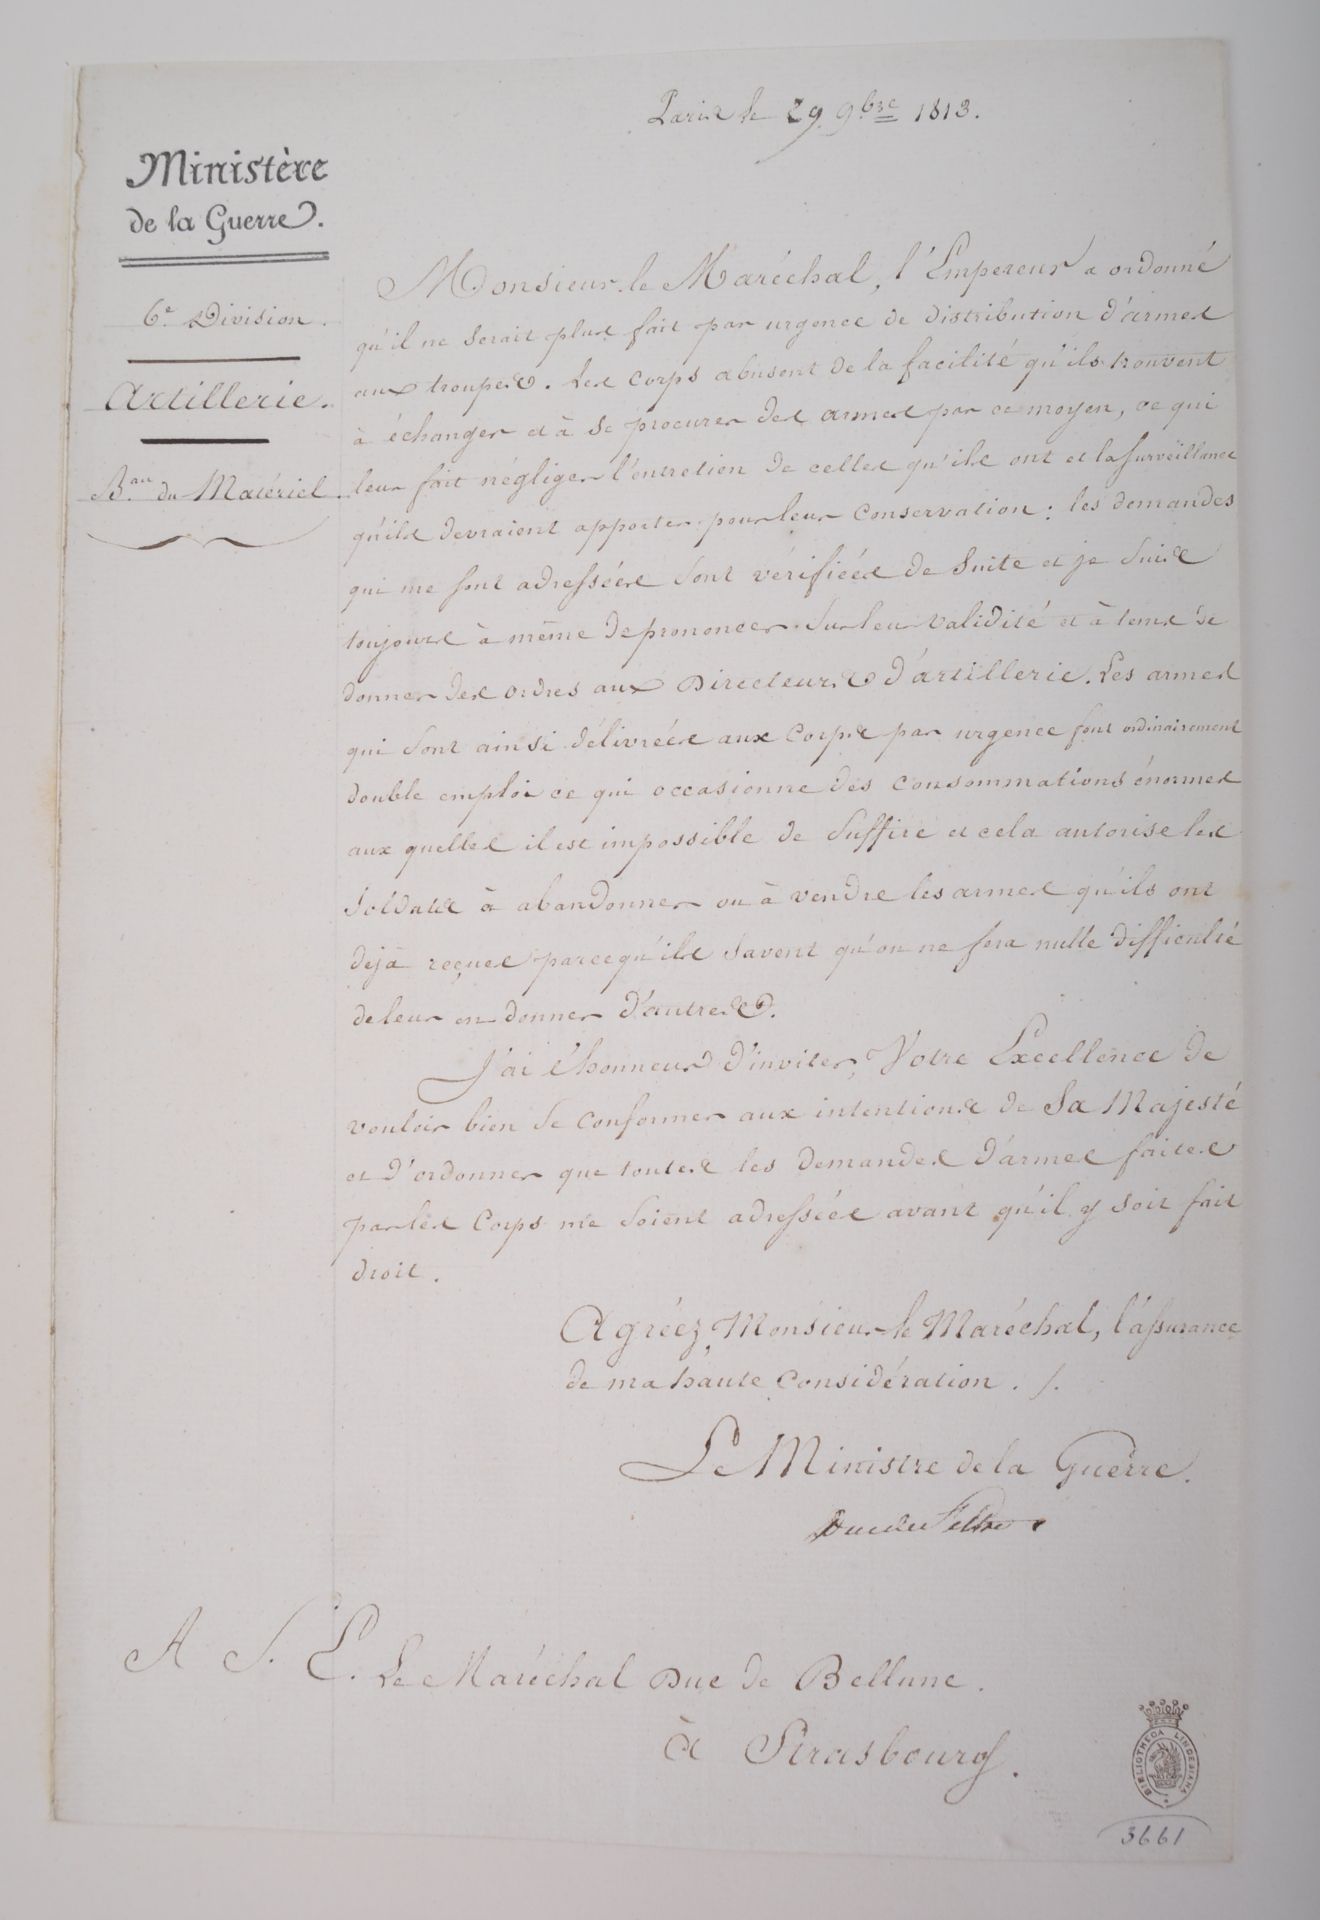 Paris le 29 9bre 1813.
Ministère
de la Guerre.
6e Division.
Artillerie.
Bau du Matériel.
Monsieur le Maréchal, l'Empereur a ordonné
qu'il ne serait plus fait par urgence de distribution d'armes
aux troupes. Les corps abusent de la facilité qu'ils trouvent
à échanger et à se procurer des armes par ce moyen, ce qui
leur fait négliger l'entretien de celles qu'ils ont et la surveillance
qu'ils devraient apporter pour leur conservation : les demandes
qui me sont adressées sont vérifiées de suite et je suis
toujours à même de prononcer sur leur validité et à tems de
donner des ordres aux Directeurs d'artillerie. Les armes
qui sont ainsi délivrées aux Corps par urgence font ordinairement
double emploi ce qui occasionne des consommations énormes
aux quelles il est impossible de suffire et cela autorise les
soldats à abandonner ou à vendre les armes qu'ils ont
déjà reçues parcequ'ils savent qu'on ne fera nulle difficulté
de leur en donner d'autres.
J'ai l'honneur d'inviter Votre Excellence de
vouloir bien se conformer aux intentions de Sa Majesté
et d'ordonner que toutes les demandes d'armes faites
par les Corps me soient adressées avant qu'il y soit fait
droit.
Agréez, Monsieur le Maréchal, l'assurance
de ma haute considération. /.
Le Ministre de la Guerre.
Duc de Feltre
A S. E. Le Maréchal Duc de Bellune.
à Strasbourg.
BIBLIOTHECA LINDESIANA
3661